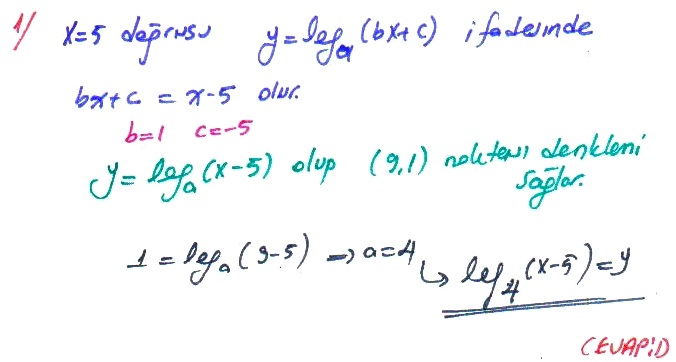 1/ x=5 doğrusu y=logₐ(bx+c) ifadesinde
bx+c = x-5 olur.
b=1 c=-5
y=logₐ(x-5) olup (9,1) noktası denklemi
sağlar.
1 = logₐ(9-5) → a=4 ↳ log₄(x-5)=y
CEVAP:D